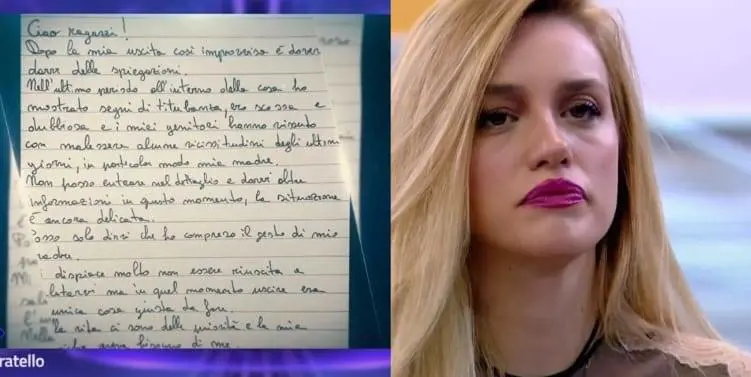 Ciao ragazzi!
Dopo la mia uscita così improvvisa è dover
darvi delle spiegazioni.
Nell'ultimo periodo all'interno della casa ho
mostrato segni di titubanza, ero scossa e
dubbiosa e i miei genitori hanno vissuto
con malessere alcune vicissitudini degli ultimi
giorni, in particolar modo mia madre.
Non posso entrare nel dettaglio e darvi oltre
informazioni in questo momento, la situazione
è ancora delicata.
osso solo dirvi che ho compreso il gesto di mio
padre.
i dispiace molto non essere riuscita a
lutarvi ma in quel momento uscire era
unica cosa giusta da fare.
la vita ci sono delle priorità e la mia
aveva bisogno di me.
ratello